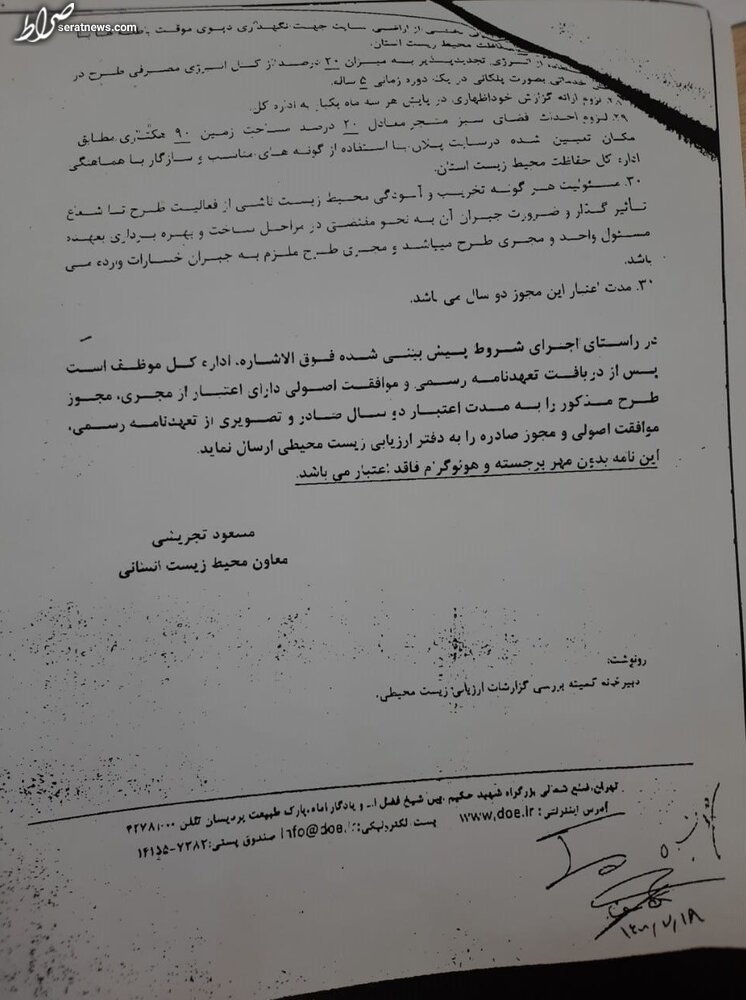 صراط
seratnews.com
از اراضی سایت جهت نگهداری دپوی موقت
حفاظت محیط زیست استان.
از انرژی تجدیدپذیر به میزان ۲۰ درصد از کل انرژی مصرفی طرح در
خدماتی بصورت پلکانی در یک دوره زمانی ۵ ساله.
لزوم ارائه گزارش خوداظهاری در پایش هر سه ماه یکبار به اداره کل.
۲۹. لزوم احداث فضای سبز منجر معادل ۲۰ درصد مساحت زمین ۹۰ هکتاری مطابق
مکان تعیین شده درسایت پلان با استفاده از گونه های مناسب و سازگار با هماهنگی
اداره کل حفاظت محیط زیست استان.
۳۰. مسئولیت هر گونه تخریب و آلودگی محیط زیست ناشی از فعالیت طرح تا شعاع
تأثیر گذار و ضرورت جبران آن به نحو مقتضی در مراحل ساخت و بهره برداری بعهده
مسئول واحد و مجری طرح میباشد و مجری طرح ملزم به جبران خسارات وارده می
باشد.
۳۰. مدت اعتبار این مجوز دو سال می باشد.
در راستای اجرای شروط پیش بینی شده فوق الاشاره، اداره کل موظف است
پس از دریافت تعهدنامه رسمی و موافقت اصولی دارای اعتبار از مجری، مجوز
طرح مذکور را به مدت اعتبار دو سال صادر و تصویری از تعهدنامه رسمی،
موافقت اصولی و مجوز صادره را به دفتر ارزیابی زیست محیطی ارسال نماید.
این نامه بدون مهر برجسته و هولوگرام فاقد اعتبار می باشد.
مسعود تجریشی
معاون محیط زیست انسانی
رونوشت:
دبیرخانه کمیته بررسی گزارشات ارزیابی زیست محیطی.
تهران، ضلع شمالی بزرگراه شهید حکیم، بین شیخ فضل ا... و یادگار امام، پارک طبیعت پردیسان تلفن ۴۲۷۸۱۰۰۰
آدرس اینترنتی: www.doe.ir پست الکترونیکی: info@doe.ir صندوق پستی: ۷۳۸۳-۱۴۱۵۵